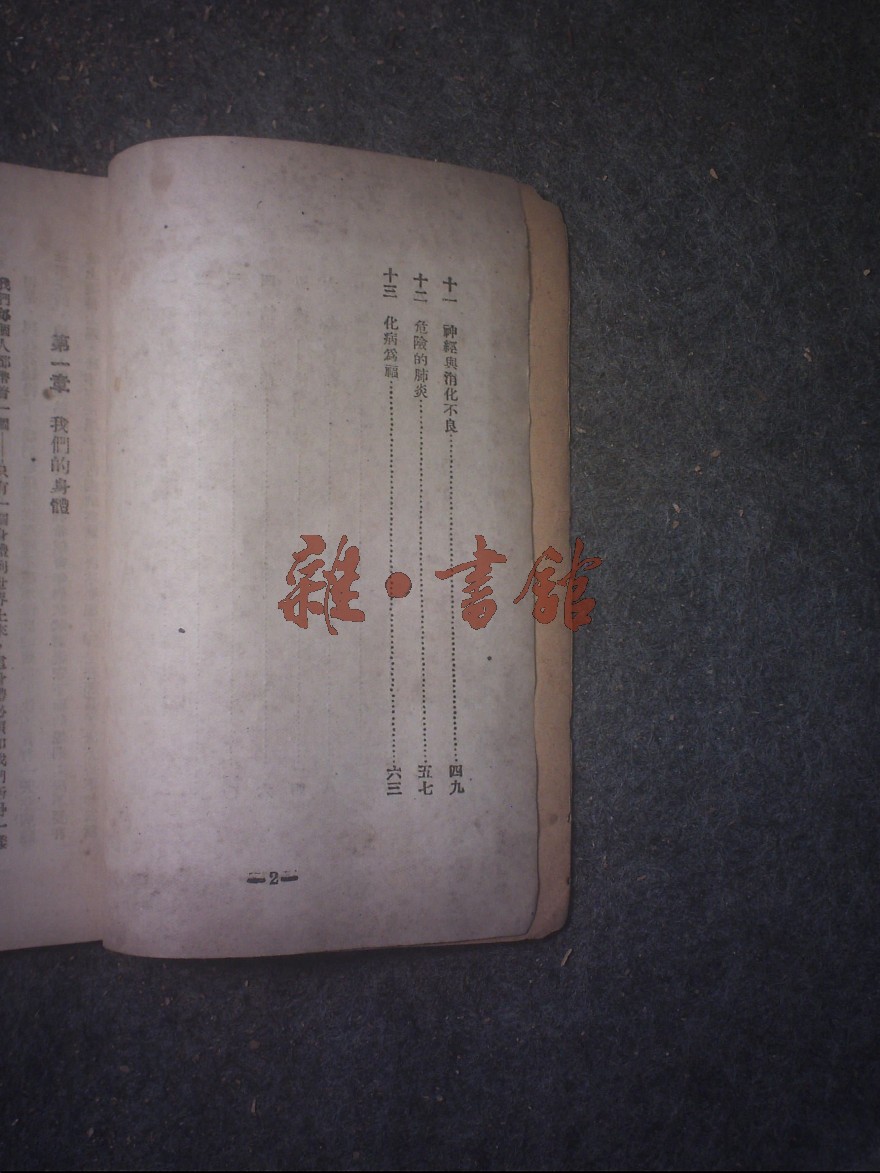 十一 神經與消化不良⋯⋯⋯⋯四九
十二 危險的肺炎⋯⋯⋯⋯五七
十三 化病爲福⋯⋯⋯⋯六三
—2—
第一章 我們的身體
雜·書館